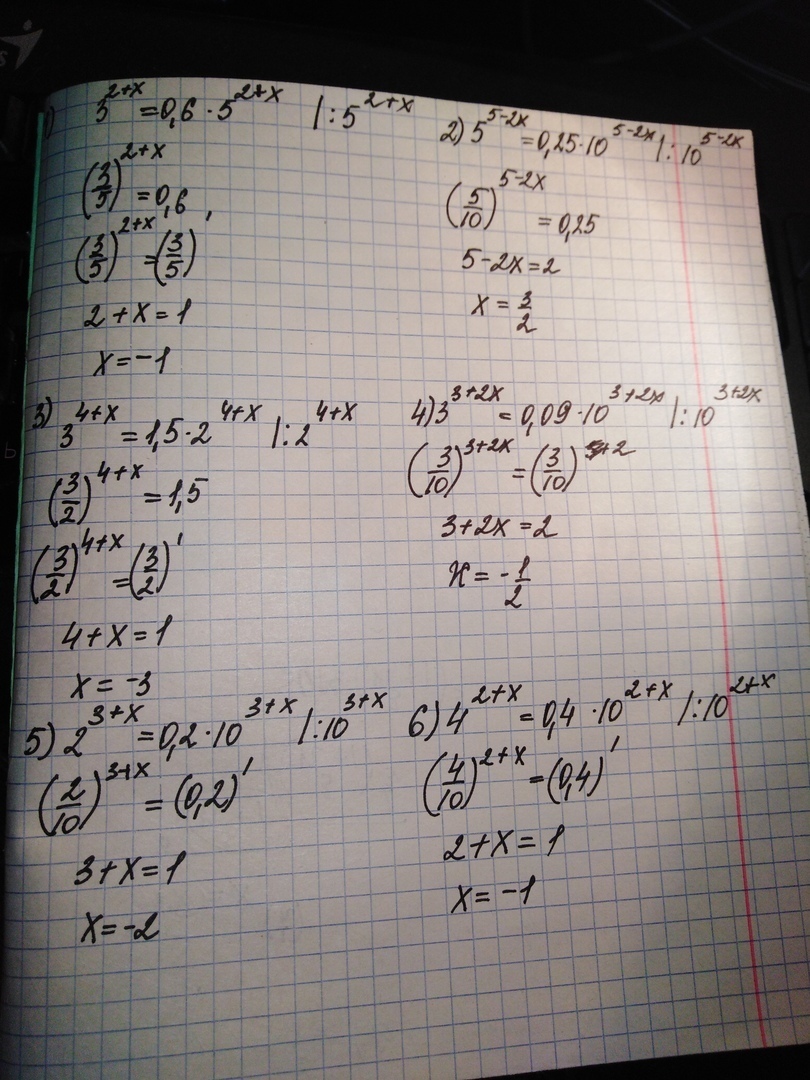 1) 3^{2+x} = 0,6 · 5^{2+x} |: 5^{2+x}
(3/5)^{2+x} = 0,6
(3/5)^{2+x} = (3/5)^1
2 + x = 1
x = -1
2) 5^{5-2x} = 0,25 · 10^{5-2x} |: 10^{5-2x}
(5/10)^{5-2x} = 0,25
5 - 2x = 2
x = 3/2
3) 3^{4+x} = 1,5 · 2^{4+x} |: 2^{4+x}
(3/2)^{4+x} = 1,5
(3/2)^{4+x} = (3/2)^1
4 + x = 1
x = -3
4) 3^{3+2x} = 0,09 · 10^{3+2x} |: 10^{3+2x}
(3/10)^{3+2x} = (3/10)^2
3 + 2x = 2
x = -1/2
5) 2^{3+x} = 0,2 · 10^{3+x} |: 10^{3+x}
(2/10)^{3+x} = (0,2)^1
3 + x = 1
x = -2
6) 4^{2+x} = 0,4 · 10^{2+x} |: 10^{2+x}
(4/10)^{2+x} = (0,4)^1
2 + x = 1
x = -1